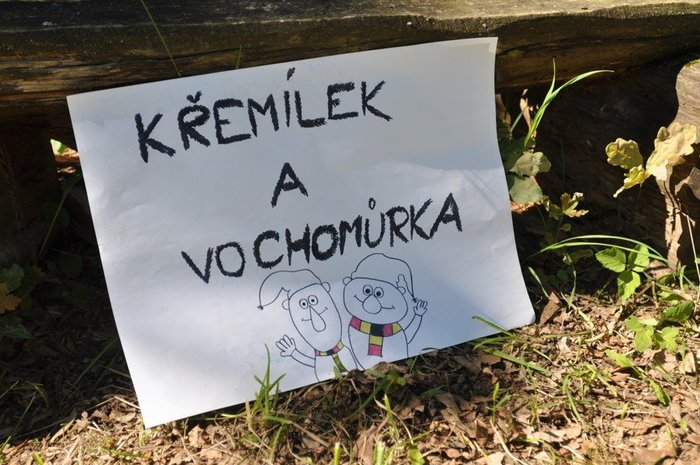 KŘEMÍLEK
A
VOCHOMŮRKA